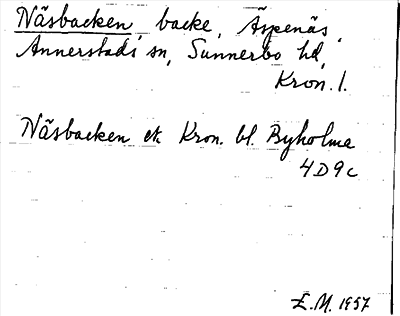 Näsbacken backe, Äspenäs,
Annerstads sn, Sunnerbo hd,
Kron. l.
Näsbacken ek. Kron. bl. Byholma
4D9c
E.M. 1957